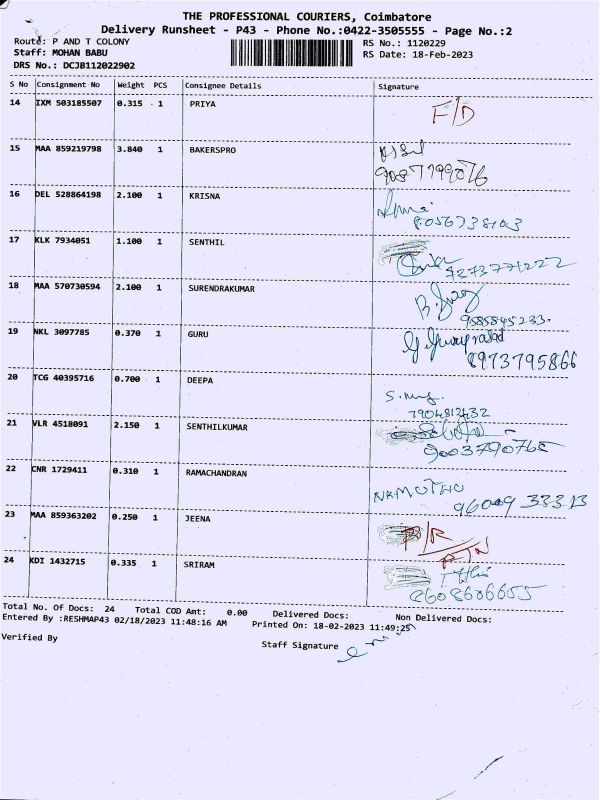 THE PROFESSIONAL COURIERS, Coimbatore
Delivery Runsheet - P43 - Phone No.:0422-3505555 - Page No.:2
Route: P AND T COLONY RS No.: 1120229
Staff: MOHAN BABU RS Date: 18-Feb-2023
DRS No.: DCJB112022902
S No Consignment No Weight PCS Consignee Details Signature
14 IXM 503185507 0.315 1 PRIYA F/D
15 MAA 859219798 3.840 1 BAKERSPRO
9087799076
16 DEL 528864198 2.100 1 KRISNA
8056738103
17 KLK 7934051 1.100 1 SENTHIL
7273771222
18 MAA 570730594 2.100 1 SURENDRAKUMAR
9585845233.
19 NKL 3097785 0.370 1 GURU
8973795866
20 TCG 40395716 0.700 1 DEEPA
21 VLR 4518091 2.150 1 SENTHILKUMAR
9003790765
22 CNR 1729411 0.310 1 RAMACHANDRAN
23 MAA 859363202 0.250 1 JEENA
24 KDI 1432715 0.335 1 SRIRAM
8608606655
Total No. Of Docs: 24 Total COD Amt: 0.00 Delivered Docs: Non Delivered Docs:
Entered By :RESHMAP43 02/18/2023 11:48:16 AM Printed On: 18-02-2023 11:49:25
Verified By Staff Signature